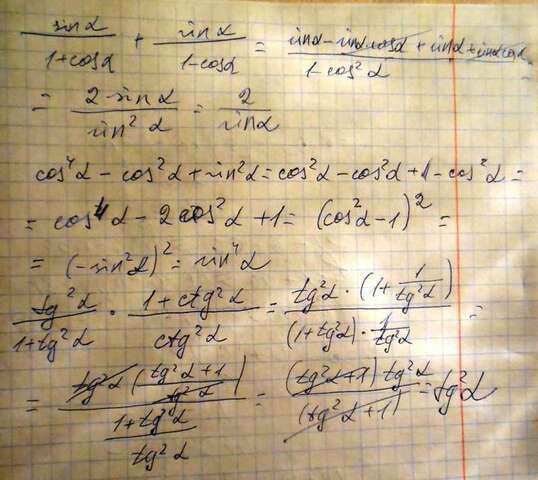 sinα/(1+cosα) + sinα/(1-cosα) = (sinα - sinαcosα + sinα + sinαcosα)/(1-cos²α) =
= 2·sinα/sin²α = 2/sinα
cos⁴α - cos²α + sin²α = cos²α - cos²α + 1 - cos²α =
= cos⁴α - 2cos²α + 1 = (cos²α - 1)² =
= (-sin²α)² = sin⁴α
tg²α/(1+tg²α) · (1+ctg²α)/ctg²α = tg²α·(1+1/tg²α)/((1+tg²α)·1/tg²α) =
= tg²α((tg²α+1)/tg²α)/((1+tg²α)/tg²α) = (tg²α+1)tg²α/(tg²α+1) = tg²α